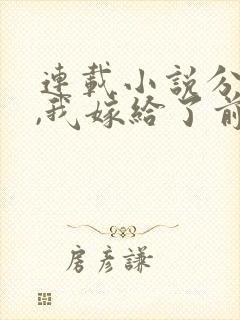 連載小說分
,我嫁給了前
房彥謙